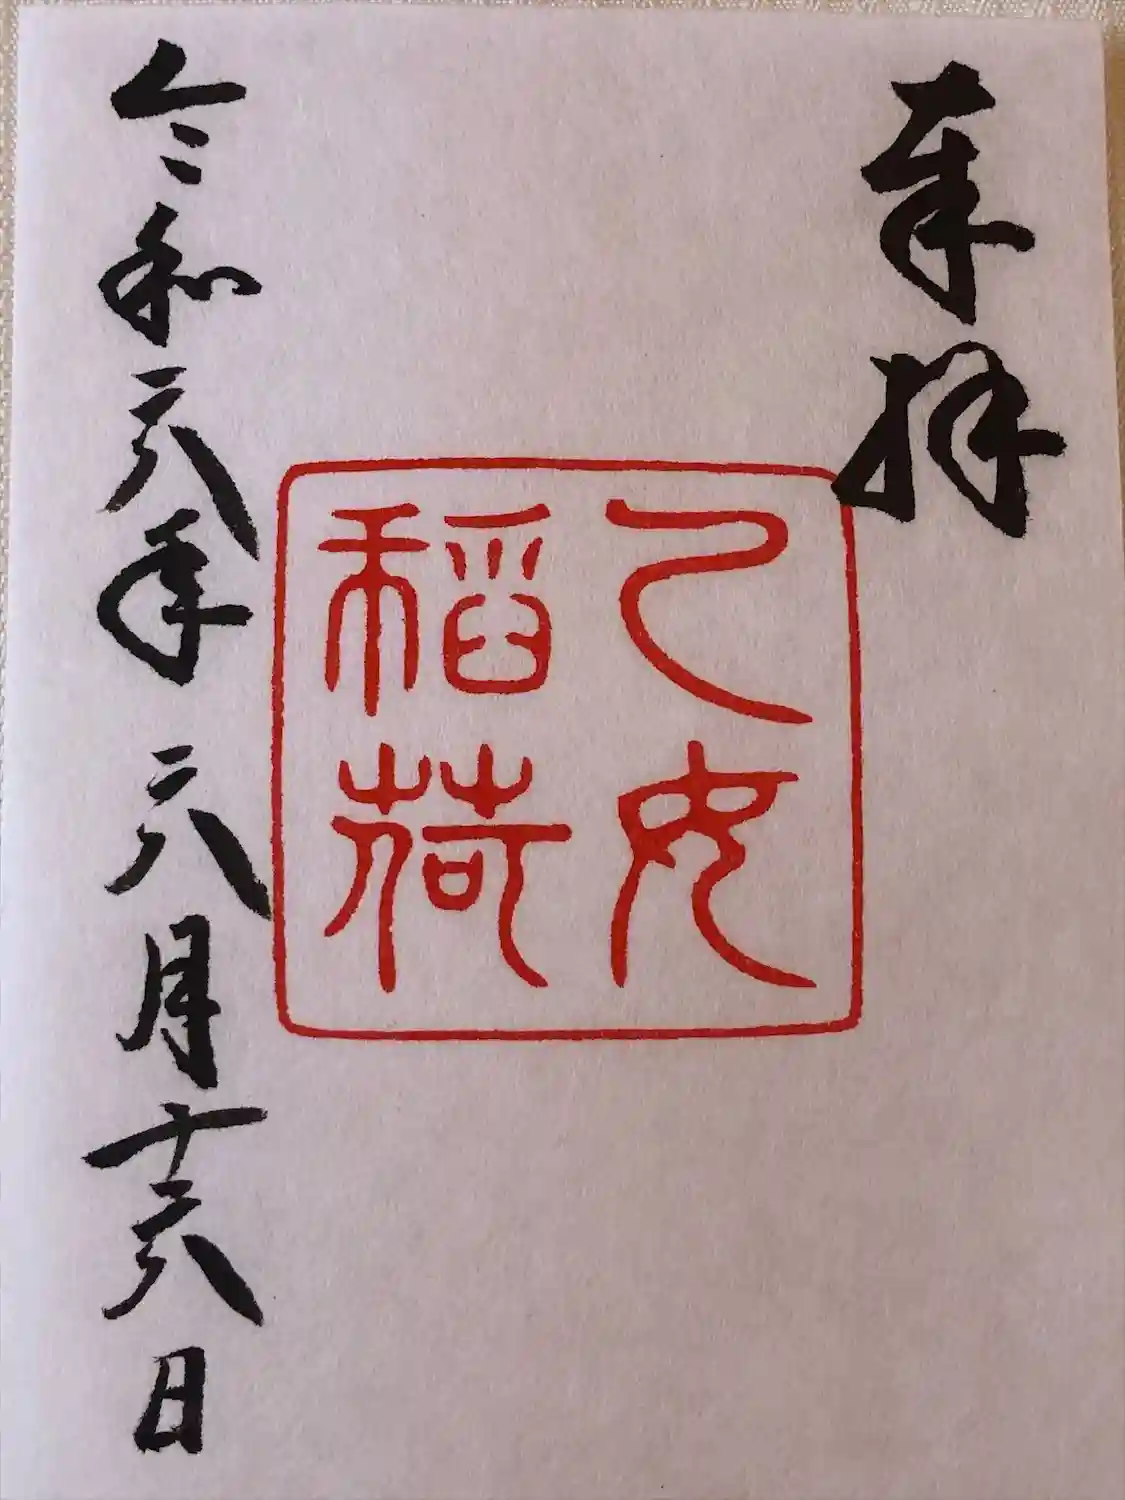 奉拝
乙女
稲荷
令和六年 六月十六日